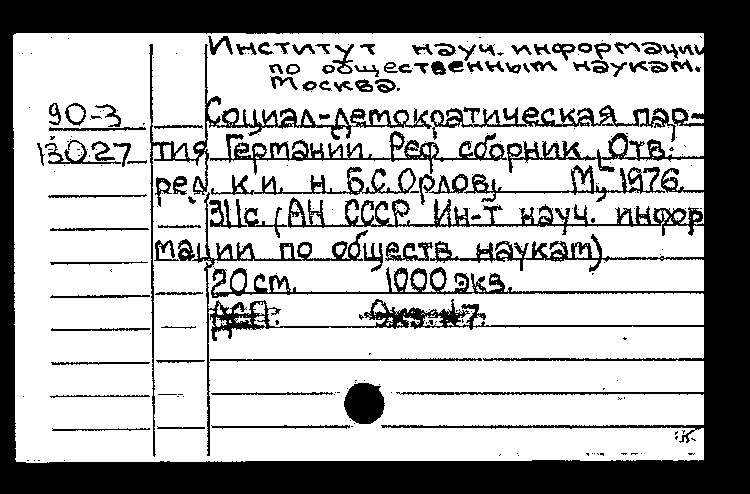 Институт науч. информации
по общественным наукам.
Москва.
90-3
Социал-демократическая пар-
13027
тия Германии. Реф. сборник. Отв.
ред. к.и. н. Б.С. Орлов. М., 1976.
311с. (АН СССР. Ин-т науч. инфор
мации по обществ. наукам).
20 ст. 1000 экз.